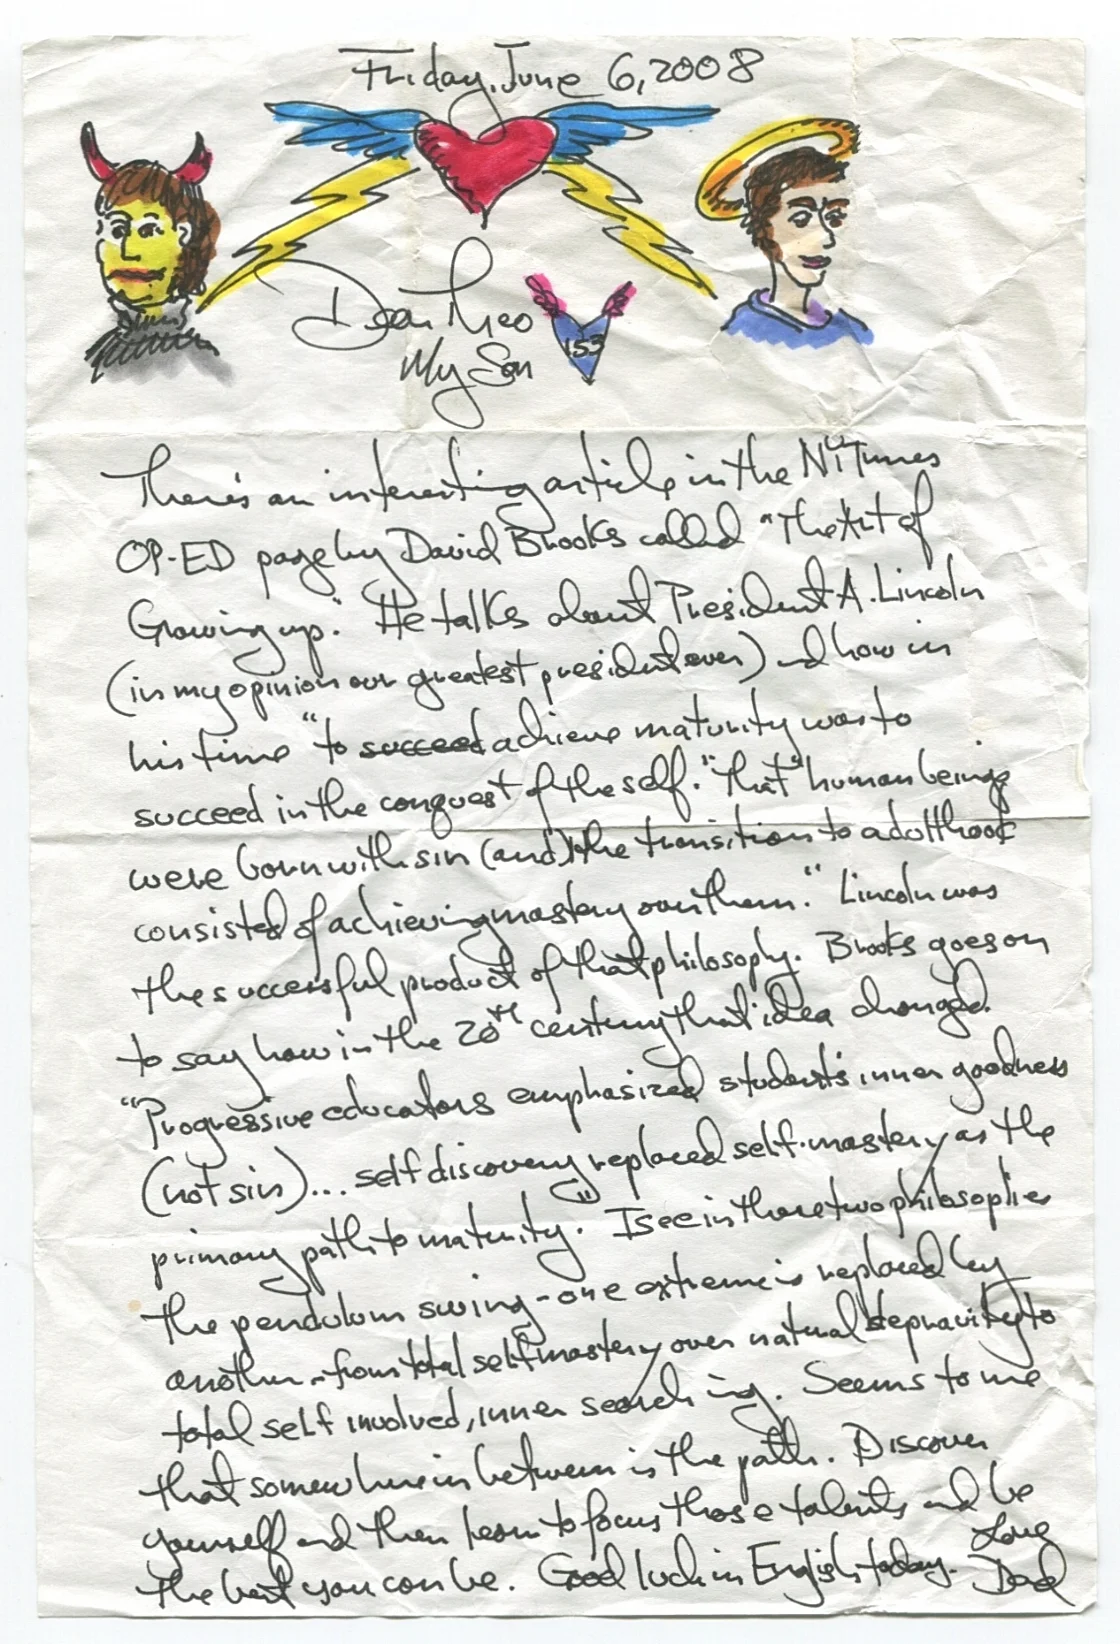 Friday, June 6, 2008
Dear Theo
My Son
153
There's an interesting article in the NYTimes
OP-ED page by David Brooks called "The Art of
Growing up." He talks about President A. Lincoln
(in my opinion our greatest president ever) and how in
his time "to succeed achieve maturity was to
succeed in the conquest of the self." "that" human beings
were born with sin (and) the transition to adulthood
consisted of achieving mastery over them." Lincoln was
the successful product of that philosophy. Brooks goes on
to say how in the 20th century that idea changed.
"Progressive educators emphasized students inner goodness
(not sin)... self discovery replaced self-mastery as the
primary path to maturity. I see in those two philosophies
the pendulum swing - one extreme is replaced by
another - from total self mastery over natural depravity to
total self involved, inner searching. Seems to me
that somewhere in between is the path. Discover
yourself and then learn to focus those talents and be
the best you can be. Good luck in English today. Love
Dad